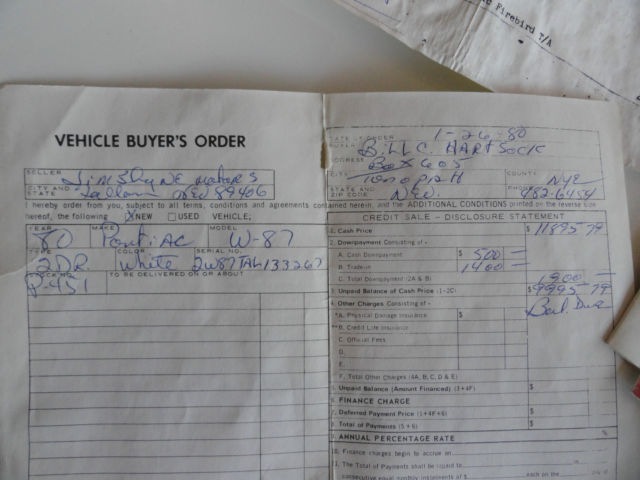 Firebird T/A
VEHICLE BUYER'S ORDER
SELLER Jim Slyne Motors
CITY AND STATE NEV 89406
I hereby order from you, subject to all terms, conditions and agreements contained herein, and the ADDITIONAL CONDITIONS printed on the reverse side
hereof, the following X NEW USED VEHICLE;
YEAR 80 MAKE PONTIAC MODEL W-87
TYPE 2DR. COLOR White SERIAL NO. 2W87TAL133267
STOCK NO. P-451 TO BE DELIVERED ON OR ABOUT
DATE OF ORDER 1-26-80
BUYER BILL C. HARTSOCK
ADDRESS Box 605
CITY Tonopah COUNTY NYE
STATE AND ZIP CODE NEV. PHONE 482-6454
CREDIT SALE - DISCLOSURE STATEMENT
1. Cash Price $ 11895 79
2. Downpayment Consisting of -
A. Cash Downpayment $ 500 —
B. Trade-in 1400 —
C. Total Downpayment (2A & B) 1900 —
3. Unpaid Balance of Cash Price (1-2C) $ 9995 79
4. Other Charges Consisting of - Bal. Due
*A. Physical Damage Insurance $
**B. Credit Life Insurance
C. Official Fees
D.
E.
F. Total Other Charges (4A, B, C, D & E)
5. Unpaid Balance (Amount Financed) (3+4F) $
6. FINANCE CHARGE $
7. Deferred Payment Price (1+4F+6) $
8. Total of Payments (5+6) $
9. ANNUAL PERCENTAGE RATE %
10. Finance charges begin to accrue on
11. The Total of Payments shall be repaid in
consecutive equal monthly instalments of $ each on the day